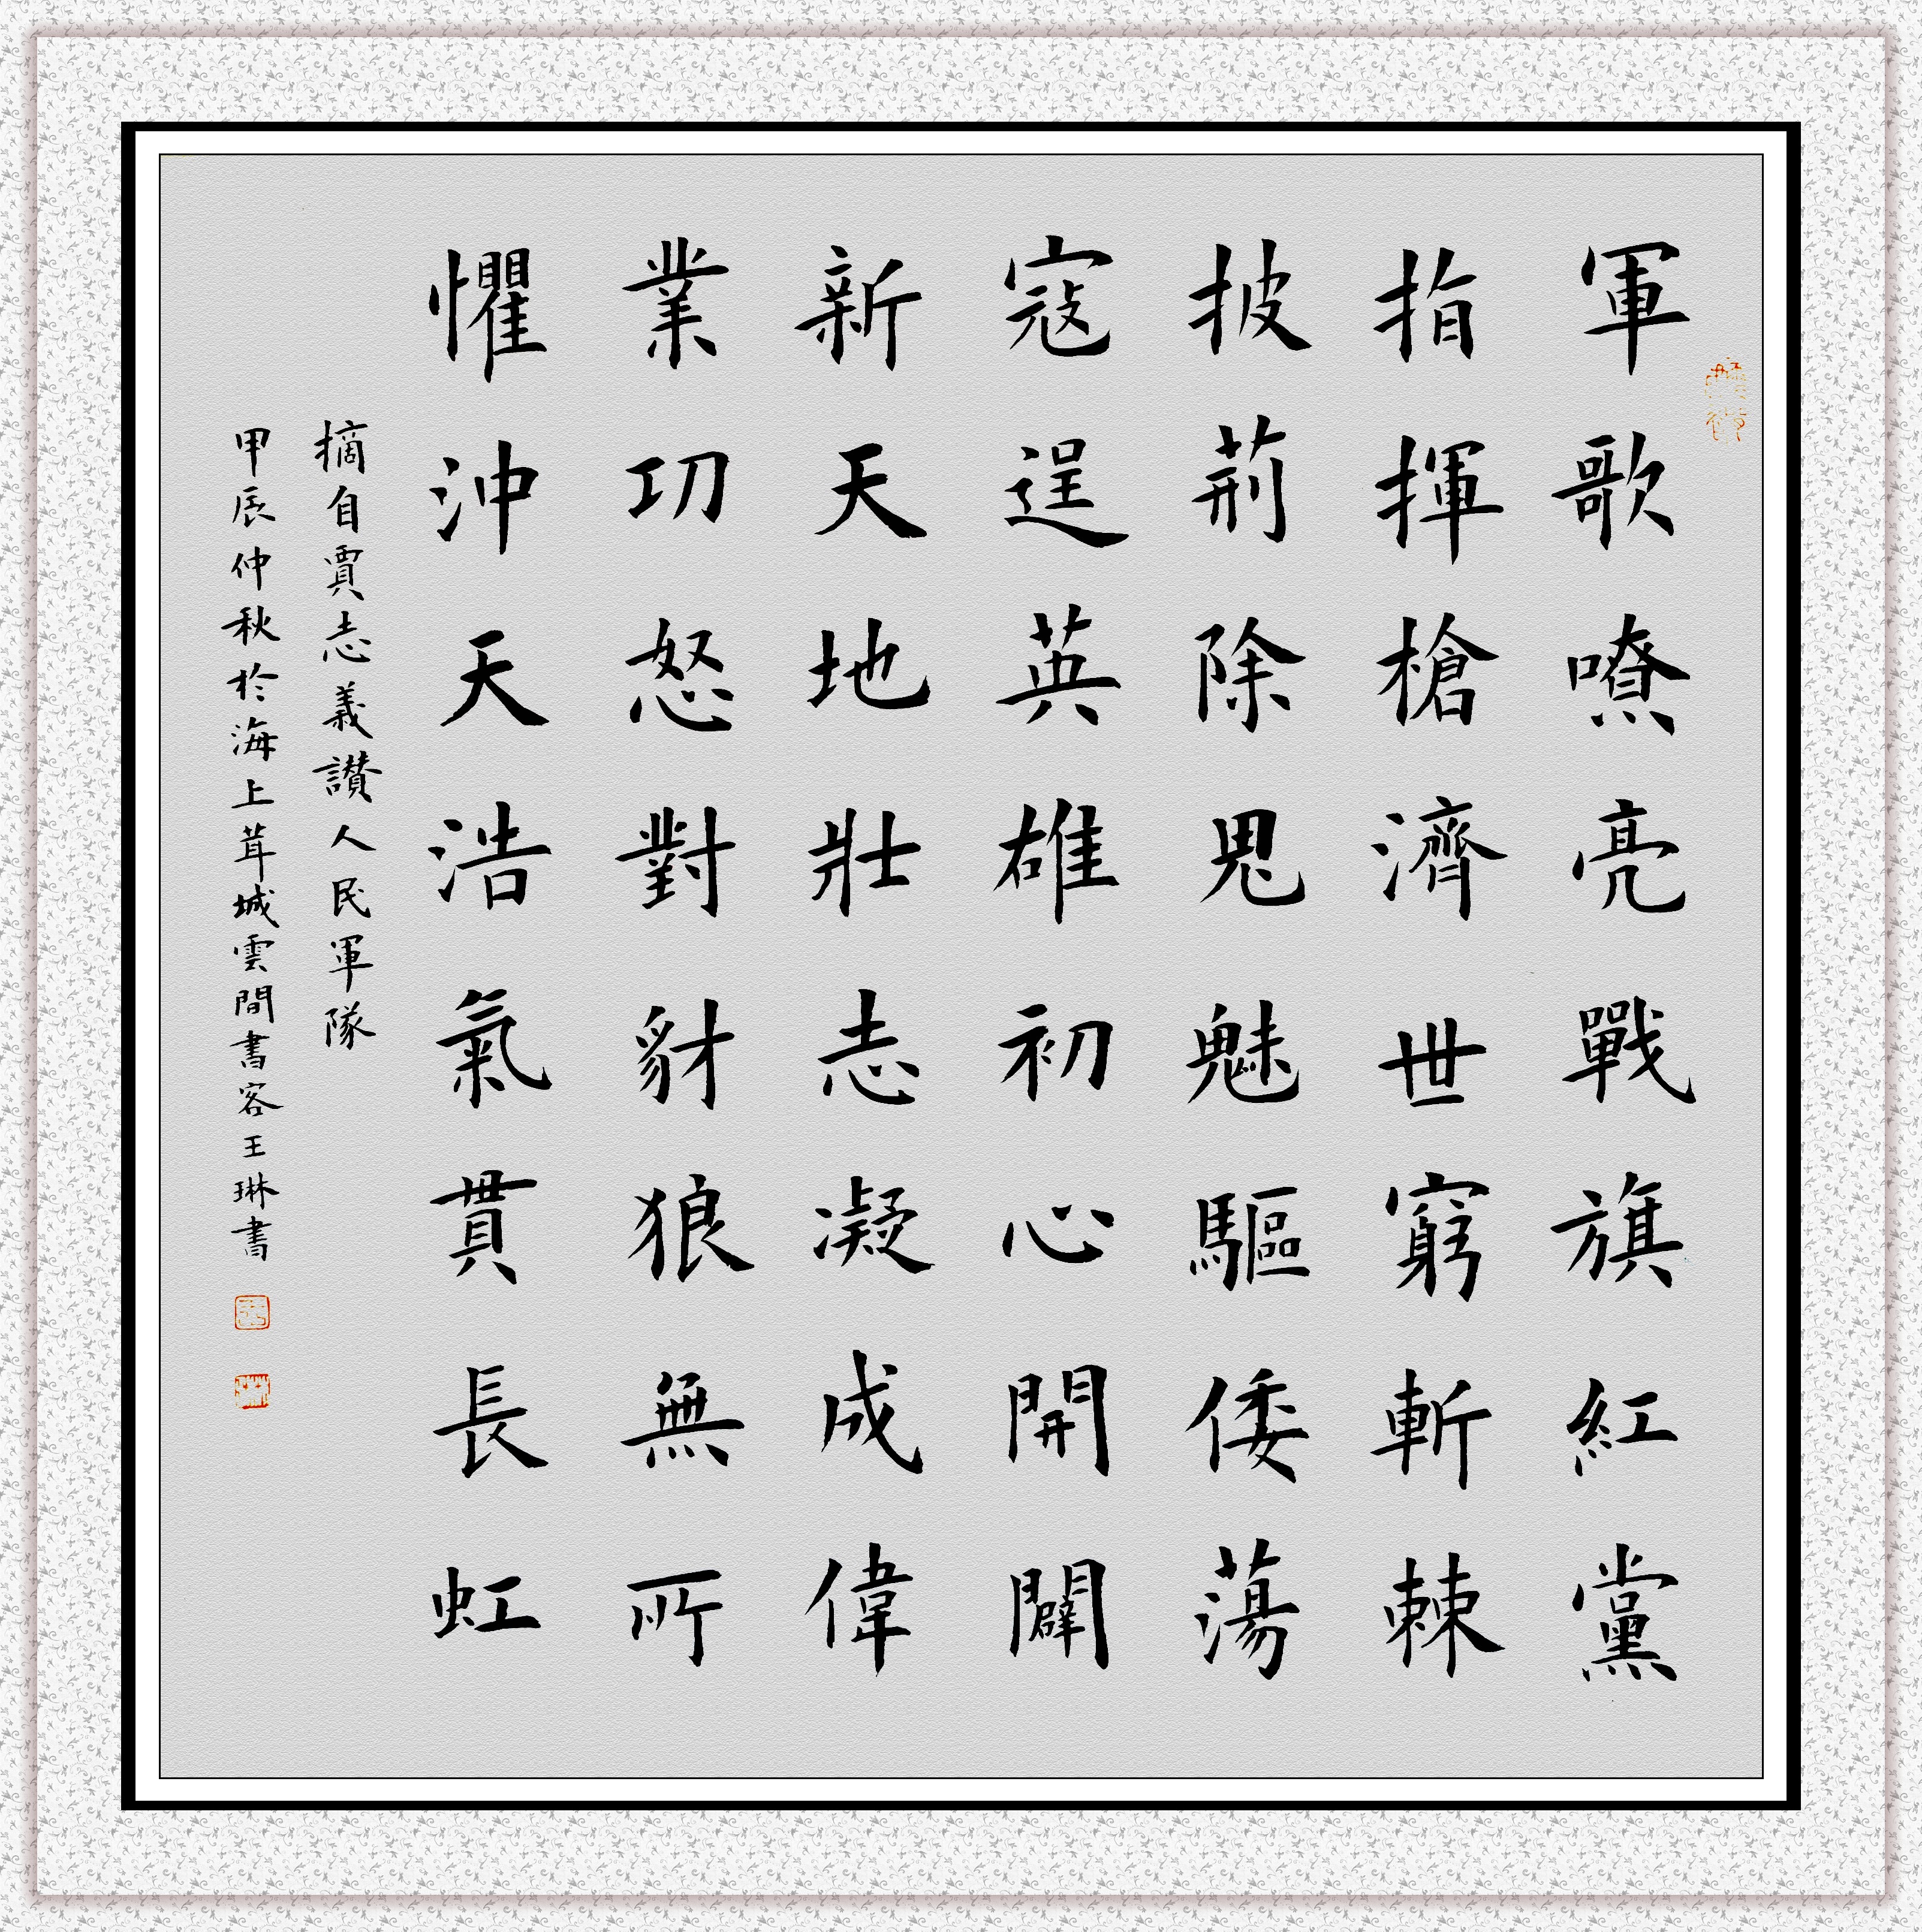 軍歌嘹亮戰旗紅黨
指揮槍濟世窮斬棘
披荊除鬼魅驅倭蕩
寇逞英雄初心開闢
新天地壯志凝成偉
業功怒對豺狼無所
懼沖天浩氣貫長虹
摘自賈志義讚人民軍隊
甲辰仲秋於海上茸城雲間書客王琳書